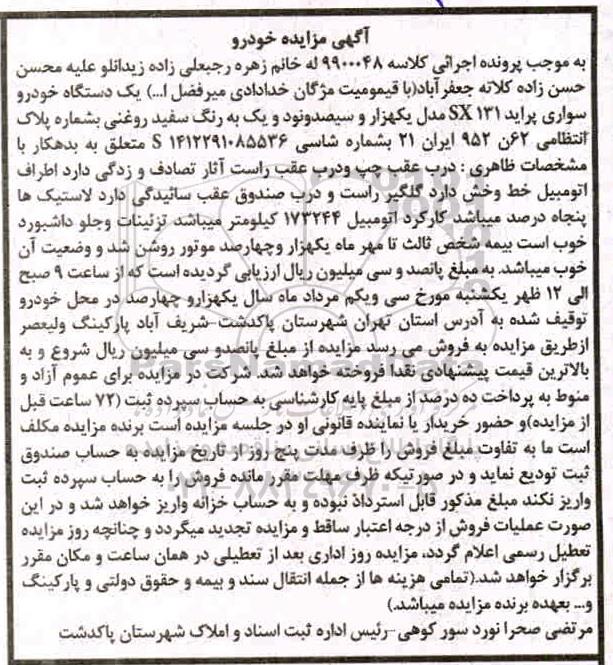 آگهی مزایده خودرو
به موجب پرونده اجرائی کلاسه ۹۹۰۰۰۴۸ له خانم زهره رجبعلی زاده زیدانلو علیه محسن
حسن زاده کلاته جعفرآباد(با قیمومیت مژگان خدادادی میرفضل ا...) یک دستگاه خودرو
سواری پراید SX ۱۳۱ مدل یکهزار و سیصدونود و یک به رنگ سفید روغنی بشماره پلاک
انتظامی ۶۲ن ۹۵۲ ایران ۲۱ بشماره شاسی S ۱۴۱۲۲۹۱۰۸۵۵۳۶ متعلق به بدهکار با
مشخصات ظاهری : درب عقب چپ ودرب عقب راست آثار تصادف و زدگی دارد اطراف
اتومبیل خط وخش دارد گلگیر راست و درب صندوق عقب سائیدگی دارد لاستیک ها
پنجاه درصد میباشد کارکرد اتومبیل ۱۷۳۲۴۴ کیلومتر میباشد تزئینات وجلو داشبورد
خوب است بیمه شخص ثالث تا مهر ماه یکهزار وچهارصد موتور روشن شد و وضعیت آن
خوب میباشد. به مبلغ پانصد و سی میلیون ریال ارزیابی گردیده است که از ساعت ۹ صبح
الی ۱۲ ظهر یکشنبه مورخ سی ویکم مرداد ماه سال یکهزارو چهارصد در محل خودرو
توقیف شده به آدرس استان تهران شهرستان پاکدشت-شریف آباد پارکینگ ولیعصر
ازطریق مزایده به فروش می رسد مزایده از مبلغ پانصدو سی میلیون ریال شروع و به
بالاترین قیمت پیشنهادی نقدا فروخته خواهد شد. شرکت در مزایده برای عموم آزاد و
منوط به پرداخت ده درصد از مبلغ پایه کارشناسی به حساب سپرده ثبت (۷۲ ساعت قبل
از مزایده)و حضور خریدار یا نماینده قانونی او در جلسه مزایده است برنده مزایده مکلف
است ما به تفاوت مبلغ فروش را ظرف مدت پنج روز از تاریخ مزایده به حساب صندوق
ثبت تودیع نماید و در صورتیکه ظرف مهلت مقرر مانده فروش را به حساب سپرده ثبت
واریز نکند مبلغ مذکور قابل استرداد نبوده و به حساب خزانه واریز خواهد شد و در این
صورت عملیات فروش از درجه اعتبار ساقط و مزایده تجدید میگردد و چنانچه روز مزایده
تعطیل رسمی اعلام گردد، مزایده روز اداری بعد از تعطیلی در همان ساعت و مکان مقرر
برگزار خواهد شد.(تمامی هزینه ها از جمله انتقال سند و بیمه و حقوق دولتی و پارکینگ
و... بعهده برنده مزایده میباشد.)
مرتضی صحرا نورد سور کوهی -رئیس اداره ثبت اسناد و املاک شهرستان پاکدشت